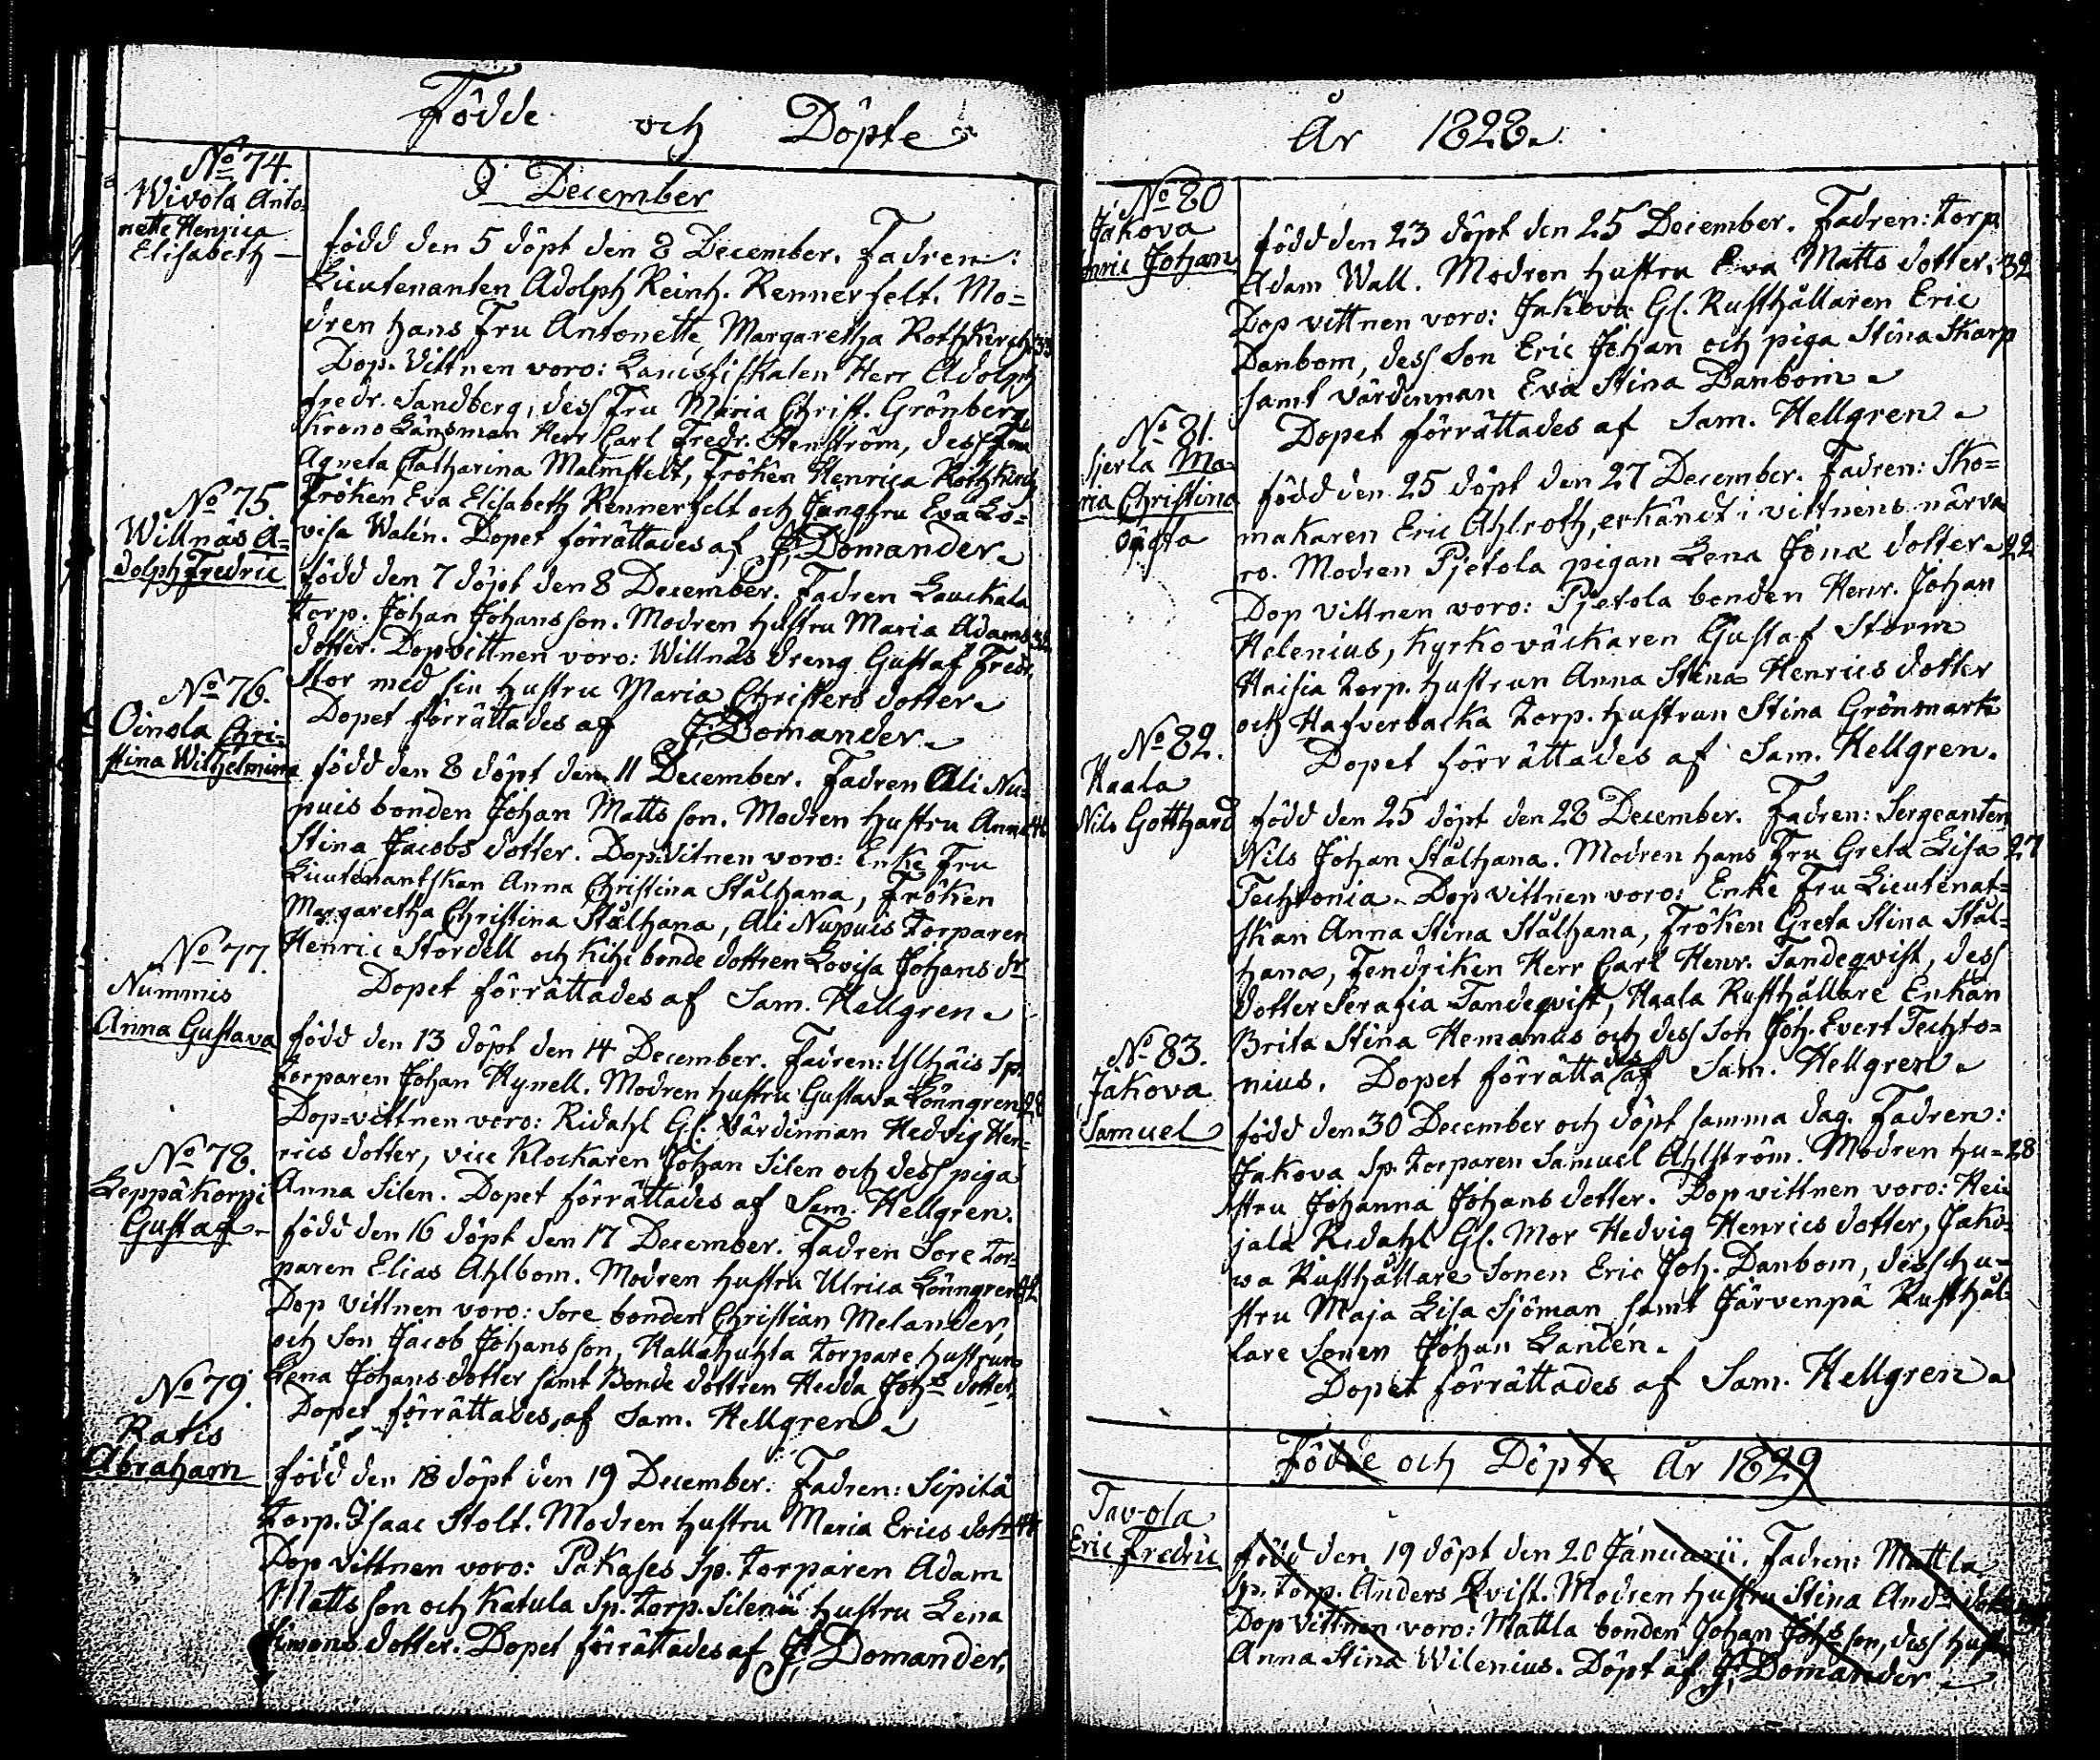 Födde och Döpte
No 74.
Wivola Anto=
nette Henrica
Elisabeth
I December
född den 5 döpt den 8 December. Fadren:
Lieutenanten Adolph Reinh. Rennerfelt. Mo=
dren hans Fru Antonette Margaretha Rothkirch 33
Dop. Vittnen voro: Landsfiskalen Herr Adolph
Fredr. Sandberg, dess Fru Maria Christ. Grönberg
Krono Länsman Herr Carl Fredr. Stenström, dess Fru
Agneta Catharina Malmstelt, Fröken Henrica Rothkirch
Fröken Eva Elisabeth Rennerfelt och Jungfru Eva Lo=
visa Walén. Dopet förrättades af J. Domander
No 75.
Willnäs A=
dolph Fredric
född den 7 döpt den 8 December. Fadren Lauckala
torp. Johan Johansson. Modren hustru Maria Adams
dotter. Dopvittnen voro: Willnäs dreng Gustaf Fredr.
Stor med sin hustru Maria Christers dotter
Dopet förrättades af J. Domander
No 76.
Oinola Chri=
stina Wilhelmina
född den 8 döpt den 11 December. Fadren Ali Nu=
puis bonden Johan Matts son. Modren hustru Anna
Stina Jacobs dotter. Dop. Vitnen voro: Enke Fru
Lieutenantskan Anna Christina Stålhana, Fröken
Margaretha Christina Stålhana, Ali Nupuis torparen
Henric Stordell och Kihi bonde dottren Lovisa Johans dr
Dopet förrättades af Sam. Hellgren
No 77.
Nummis
Anna Gustava
född den 13 döpt den 14 December. Fadren: Ylhäis Sp.
torparen Johan Hynell. Modren hustru Gustava Lönngren 28
Dop=vittnen voro: Ridahl Gl. värdinnan Hedvig Hen=
rics dotter, vice Klockaren Johan Silen och dess piga
Anna Silen. Dopet förrättades af Sam. Hellgren.
No 78.
Leppäkorpi
Gustaf
född den 16 döpt den 17 December. Fadren Sore tor=
paren Elias Ahlbom. Modren hustru Ulrica Lönngren 42
Dop vittnen voro: Sore bonden Christian Melander,
och Son Jacob Johansson, Hallahuhta torpare hustrun
Lena Johans dotter samt Bonde dottren Hedda Johs dotter,
Dopet förrättades af Sam. Hellgren
No 79.
Ratis
Abraham
född den 18 döpt den 19 December. Fadren: Sipilä
torp. Isaac Stolt. Modren hustru Maria Erics dotr 44
Dop vittnen voro: Pakases Sp. torparen Adam
Matts son och Katula Sp. torp. Silens hustru Lena
Simons dotter. Dopet förrättades af J. Domander.
År 1828
No 80
Jakova
Henric Johan
född den 23 döpt den 25 December. Fadren: torp.
Adam Wall. Modren hustru Eva Matts dotter. 32
Dop vittnen voro: Jakova Gl. Rusthållaren Eric
Danbom, dess Son Eric Johan och piga Stina Skarp
samt värdinnan Eva Stina Danbom
Dopet förrättades af Sam. Hellgren
No 81.
Ma=
ria Christina
oäcta
född den 25 döpt den 27 December. Fadren: Sko=
makaren Eric Ahlroth, erkändt i vittnens närva
ro. Modren Pjetola pigan Lena Jona dotter 22
Dop vittnen voro: Pjetola bonden Henr. Johan
Helenius, Kyrkoväckaren Gustaf Storm
Haisia torp. hustrun Anna Stina Henrics dotter
och Hafverbacka torp. hustrun Stina Grönmark
Dopet förrättades af Sam. Hellgren.
No 82.
Haala
Nils Gotthard
född den 25 döpt den 28 December. Fadren: Sergeanten
Nils Johan Stålhana. Modren hans Fru Greta Lisa 27
Techtonia. Dop vittnen voro: Enke Fru Lieutenat=
skan Anna Stina Stålhana, Fröken Greta Stina Stål=
hana, Fendriken Herr Carl Henr. Tandeqvist, dess
dotter Serafia Tandeqvist, Haala Rusthållare Enkan
Brita Stina Hemanus och dess Son Joh. Evert Techto=
nius. Dopet förrättades af Sam. Hellgren
No 83.
Jakova
Samuel
född den 30 December och döpt samma dag. Fadren:
Jakova Sp. torparen Samuel Ahlström. Modren hu= 28
stru Johanna Johans dotter. Dop vittnen voro: Hei
jala Ridahl Gl. Mor Hedvig Henrics dotter, Jako=
va Rusthållare Sonen Eric Joh. Danbom, dess hu=
stru Maja Lisa Sjöman samt Järvenpä Rusthål=
lare Sonen Johan Landén.
Dopet förrättades af Sam. Hellgren
Födde och Döpte År 1829
Tavola
Eric Fredric
född den 19 döpt den 20 Januarii. Fadren: Mattla
Sp. torp. Anders Qvist. Modren hustru Stina Ands
Dop vittnen voro: Mattla bonden Johan Johs son, dess hustru
Anna Stina Wilenius. Döpt af J. Domander